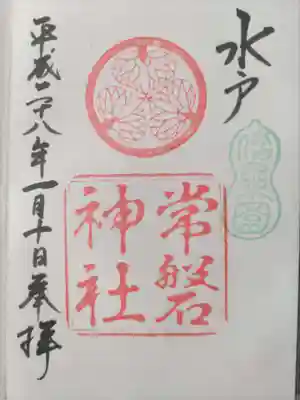 水戸
常磐
神社
平成二十八年一月十日奉拝